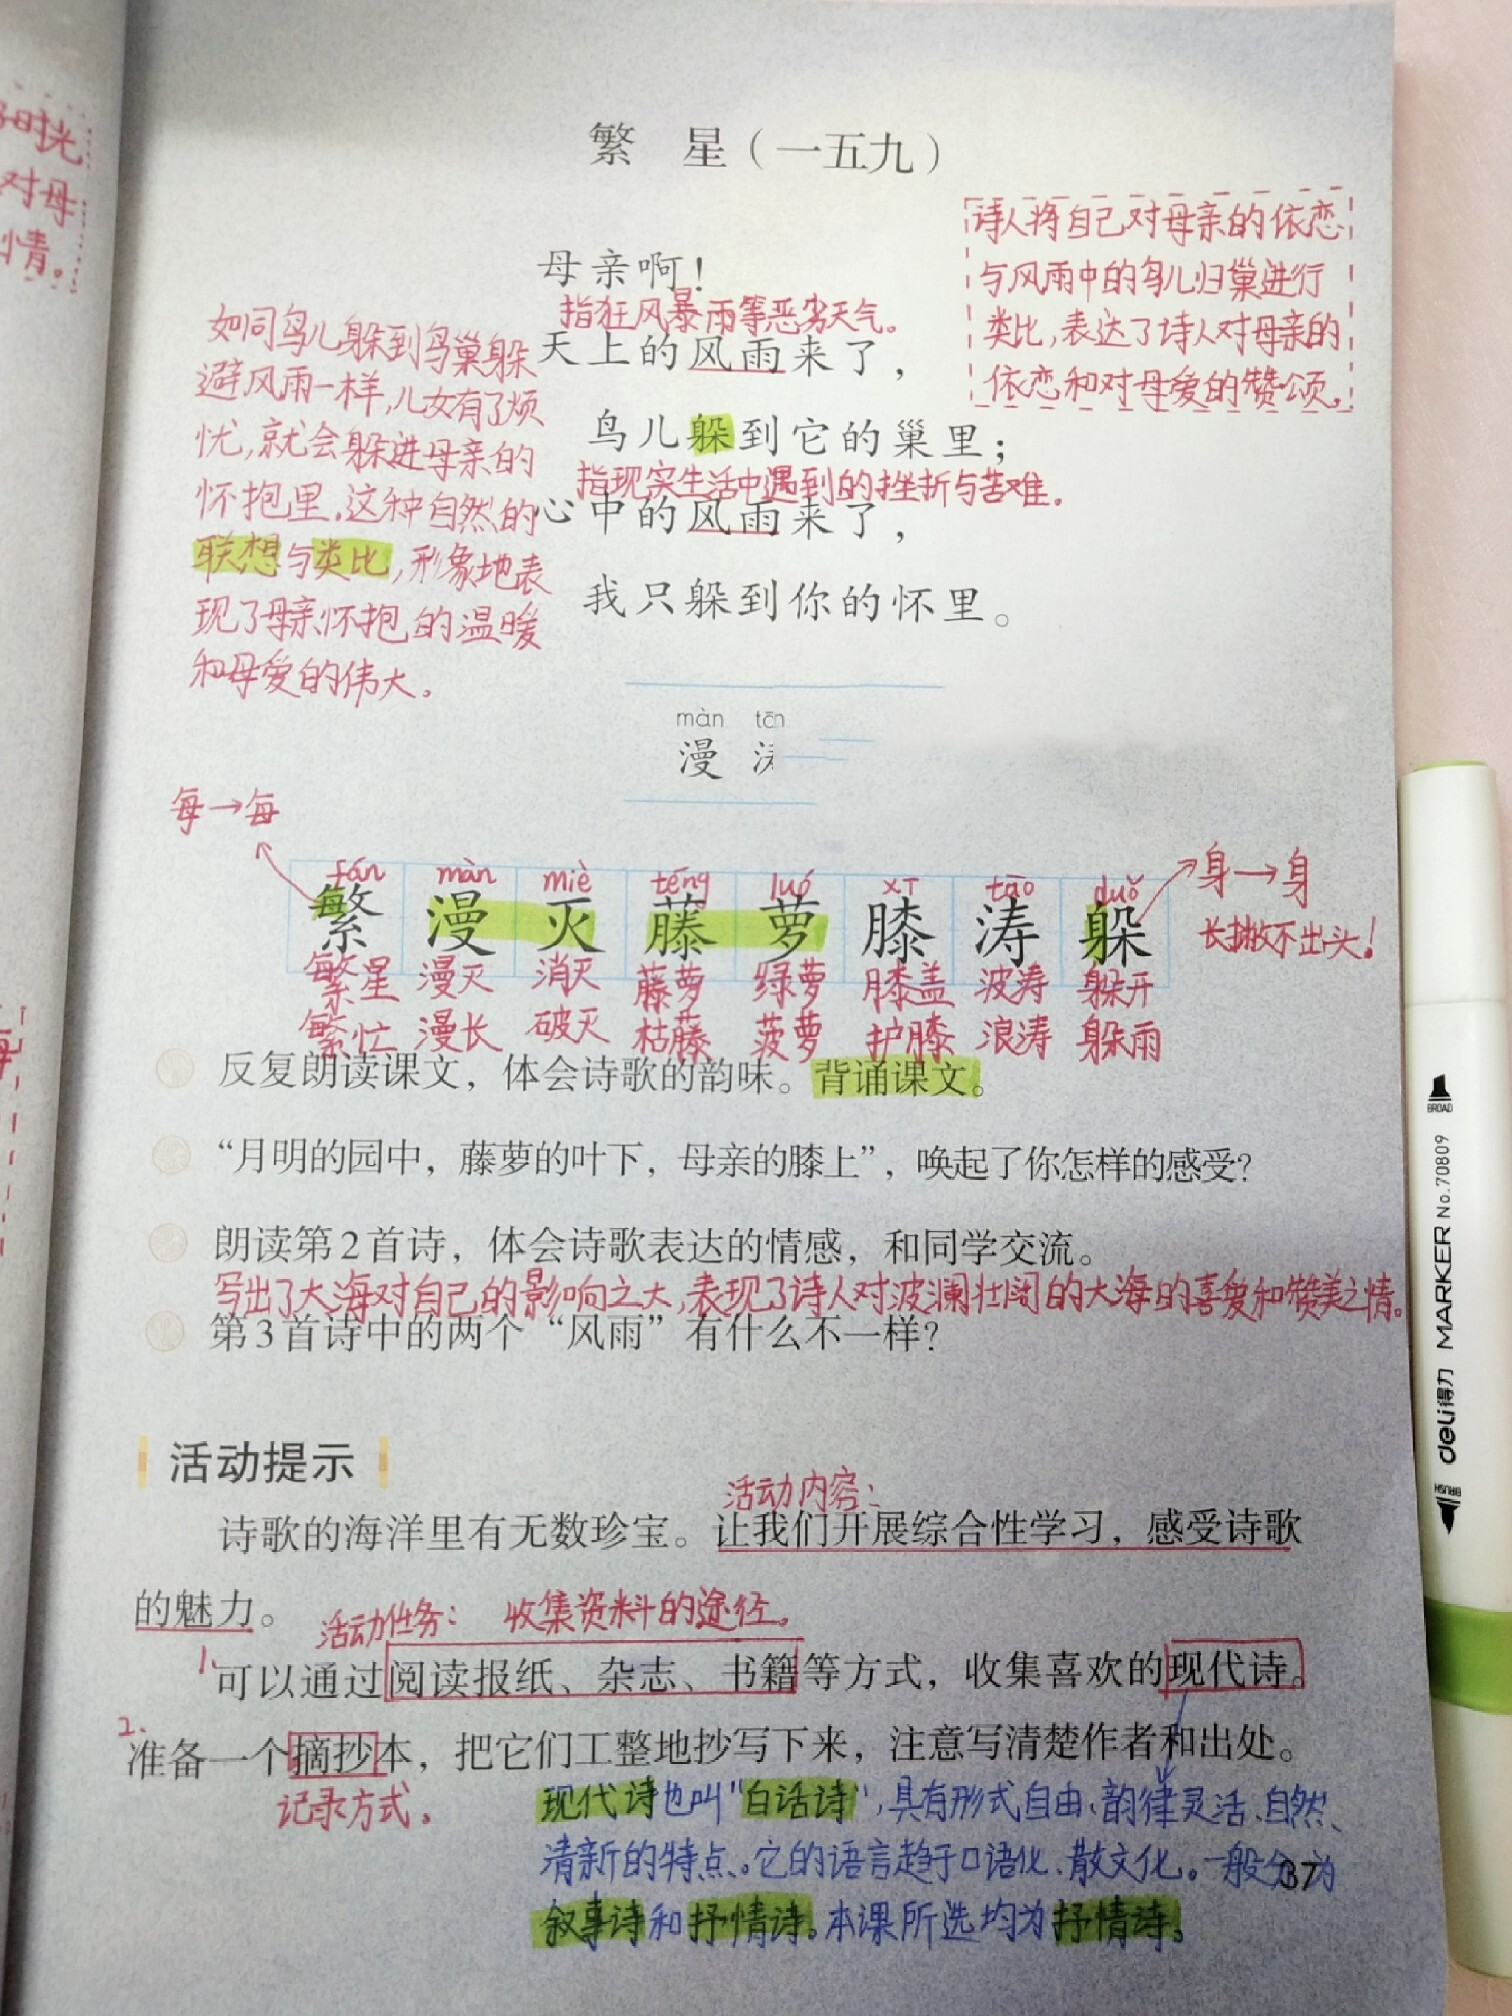 好时光
对母
情。
繁 星（一五九）
诗人将自己对母亲的依恋
与风雨中的鸟儿归巢进行
类比,表达了诗人对母亲的
依恋和对母爱的赞颂。
母亲啊！
指狂风暴雨等恶劣天气。
天上的风雨来了，
鸟儿躲到它的巢里；
指现实生活中遇到的挫折与苦难。
心中的风雨来了，
我只躲到你的怀里。
如同鸟儿躲到鸟巢躲
避风雨一样,儿女有了烦
忧,就会躲进母亲的
怀抱里。这种自然的
联想与类比,形象地表
现了母亲怀抱的温暖
和母爱的伟大。
màn tāo
漫
每→每
fán màn miè téng luó xī tāo duǒ
繁 漫 灭 藤 萝 膝 涛 躲
身→身
长撇不出头!
繁星 漫灭 消灭 藤萝 绿萝 膝盖 波涛 躲开
繁忙 漫长 破灭 枯藤 菠萝 护膝 浪涛 躲雨
反复朗读课文，体会诗歌的韵味。背诵课文。
“月明的园中，藤萝的叶下，母亲的膝上”，唤起了你怎样的感受？
朗读第2首诗，体会诗歌表达的情感，和同学交流。
写出了大海对自己的影响之大,表现了诗人对波澜壮阔的大海的喜爱和赞美之情。
第3首诗中的两个“风雨”有什么不一样？
活动提示
活动内容：
诗歌的海洋里有无数珍宝。让我们开展综合性学习，感受诗歌
的魅力。
活动任务： 收集资料的途径。
1.可以通过阅读报纸、杂志、书籍等方式，收集喜欢的现代诗。
2.准备一个摘抄本，把它们工整地抄写下来，注意写清楚作者和出处。
记录方式。
现代诗也叫"白话诗",具有形式自由、韵律灵活、自然、
清新的特点。它的语言趋于口语化、散文化。一般分为
叙事诗和抒情诗。本课所选均为抒情诗。
37
BROAD
deli得力 MARKER No.70809
BRUSH